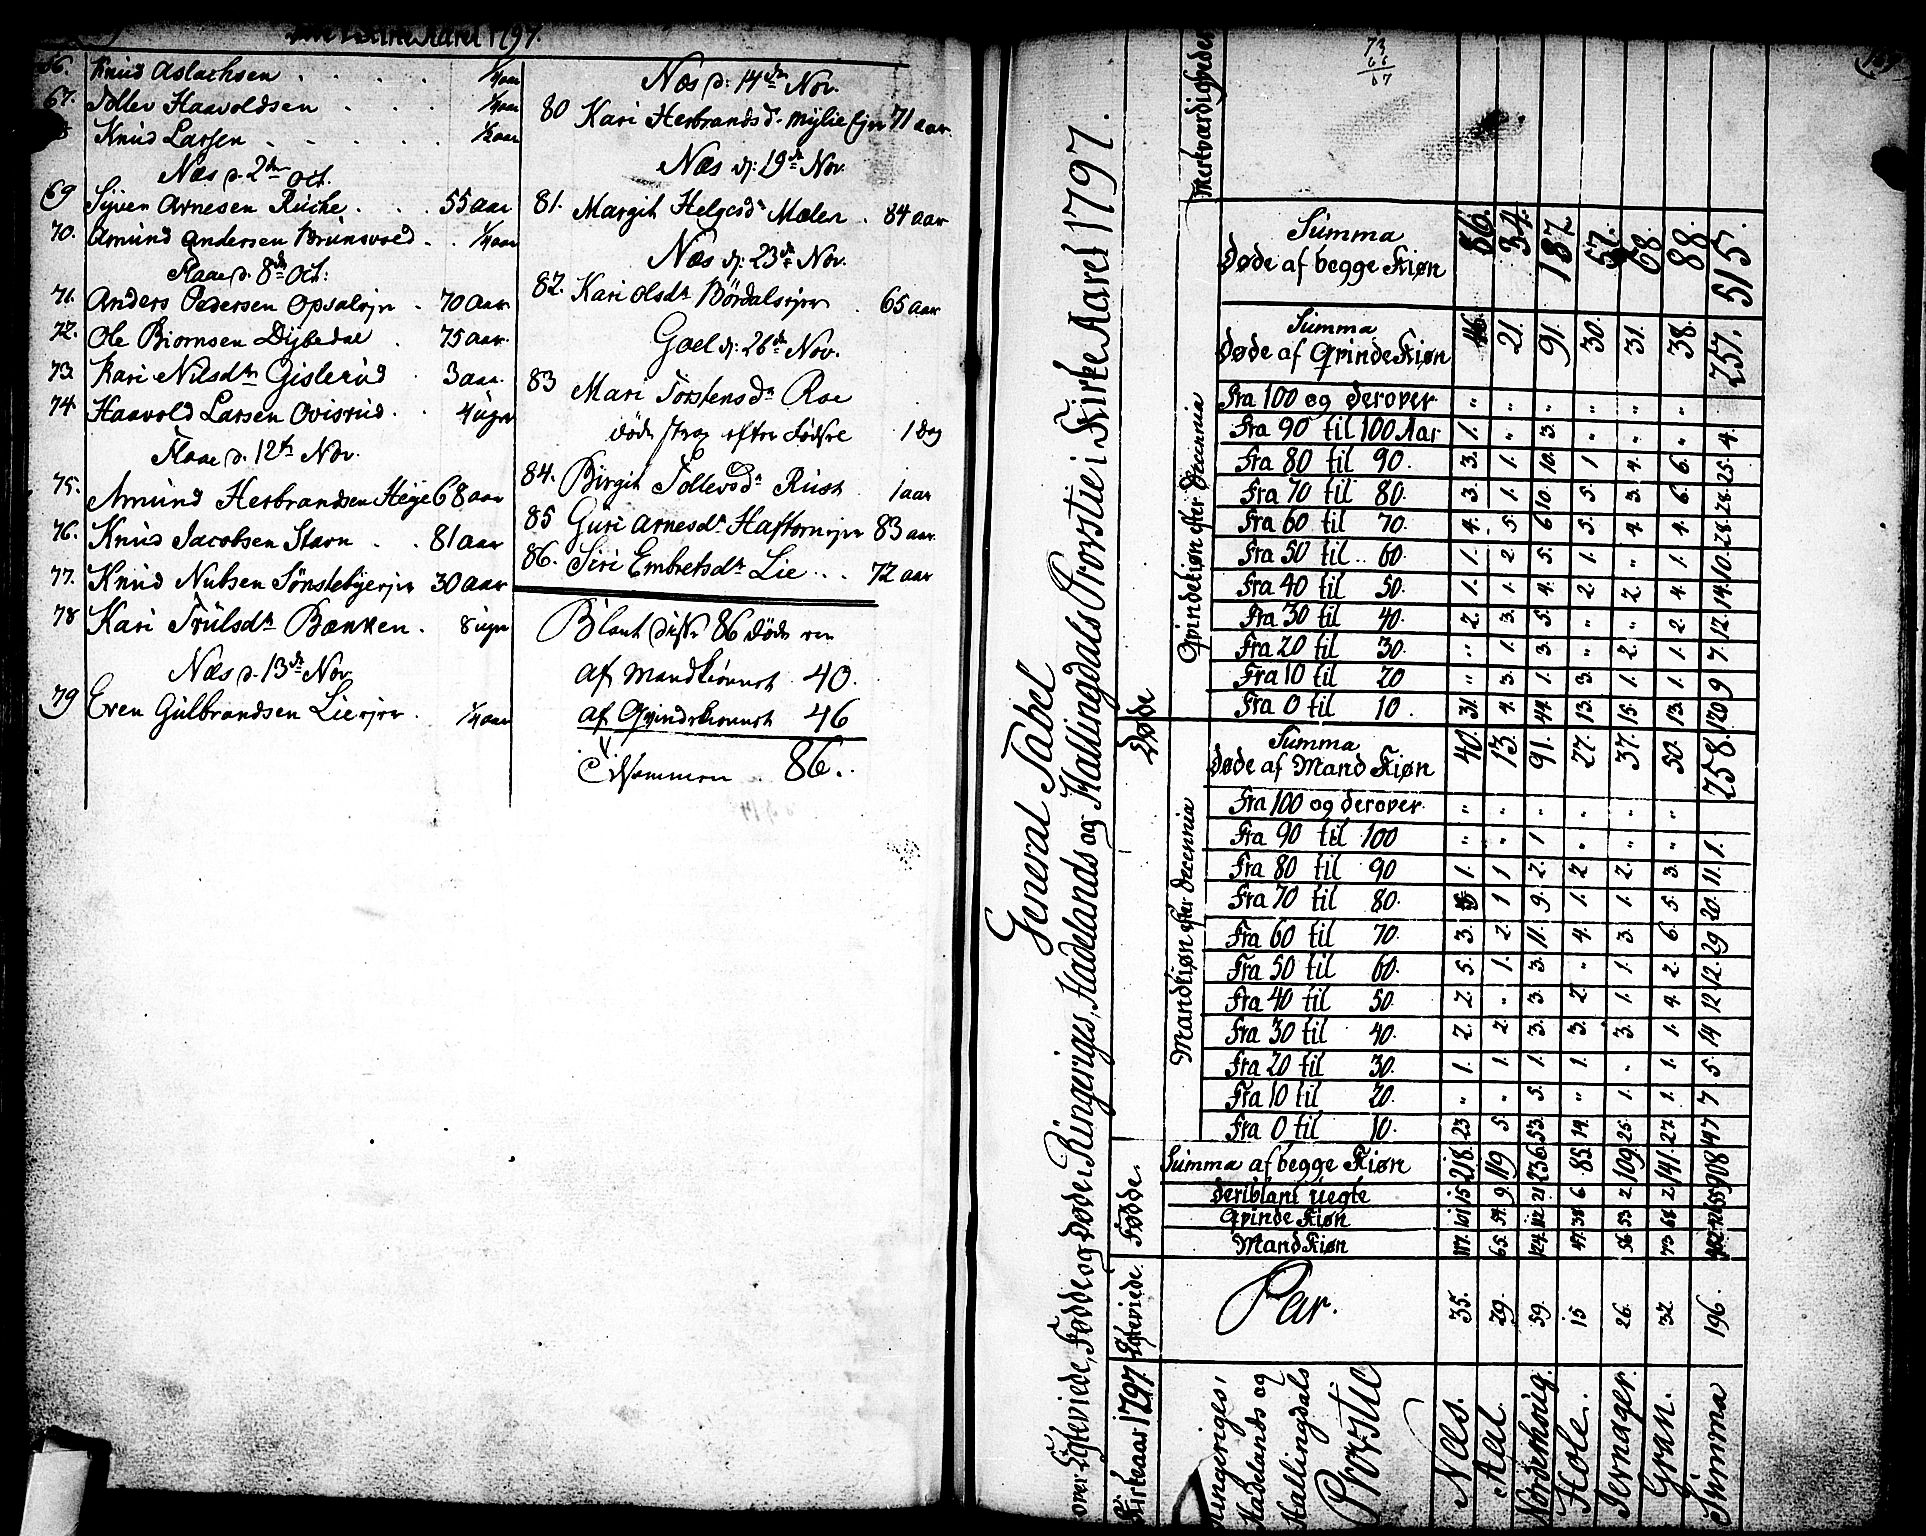 Kirke Aaret 1797.
66. Knud Aslachsen . . . . ¼ aar
67. Tollev Haavoldsen . . . ¼ aar
Knud Larsen . . . . . ½ aar
Næs d. 2den Oct.
69 Syver Arnesen Ruche . . . 55 aar
70. Amund Andersen Brunsvold . . ¼ aar
Flaae d. 8de Oct:
71. Anders Pedersen Opsalejer . 70 Aar
72. Ole Biornsen Dybedal . 75 aar.
73. Kari Nilsdtr Gislerud . 3 aar.
74. Haavold Larsen Ovisrud . . 4 uger
Flaae d. 12te Nov.
75. Amund Herbrandsen Heye 68 aar
76. Knud Jacobsen Stavn . . 81 aar
77. Knud Nubsen Sønstebyeejer 30 aar
78 Kari Trulsdtr Bænken . 8 uger
Næs d. 13de Nov
79 Even Gulbrandsen Lieejer . ¼ aar
Næs d: 14de Nov.
80 Kari Herbrandsd. Mylie Ejer 71 aar.
Næs d: 19de Nov.
81. Margit Helgesdr Mælen . 84 aar
Næs d: 23de Nov.
82. Kari Olsdtr Bördalsejer . 65 aar
Goel d: 26de Nov.
83 Mari Torstensdr Roe
døde strax efter Fødsel 1 dag
84. Birgit Tollevsdr Rust . 1 aar
85 Guri Arnesdtr Haftornejer 83 aar.
86. Siri Embretsdtr Lie . . . 72 aar
Blant disse 86 Døde ere
af Mandkiønnet 40.
af Qvindekiønnet 46
Tilsammen . 86..
73
67
General Tabel
over Ægteviede, Fødde og Døde i Ringeriges, Hadelands og Hallingdals Provstie i Kirke Aaret 1797.
Kirkeaar 1797 Ægteviede. Fødde. Døde Merkværdigheder
Mandkiøn efter Decennia Qvindekiøn efter Decennia
Ringeriges, Hadelands og Hallingdals Provstie | Par. | MandKiøn | Qvinde Kiøn | Deriblant uegte | Summa af begge Kiøn | Fra 0 til 10. | Fra 10 til 20. | Fra 20 til 30. | Fra 30 til 40. | Fra 40 til 50. | Fra 50 til 60. | Fra 60 til 70. | Fra 70 til 80. | Fra 80 til 90 | Fra 90 til 100 | Fra 100 og derover | Summa Døde af Mand Kiøn | Fra 0 til 10. | Fra 10 til 20 | Fra 20 til 30. | Fra 30 til 40. | Fra 40 til 50. | Fra 50 til 60. | Fra 60 til 70. | Fra 70 til 80. | Fra 80 til 90. | Fra 90 til 100 Aar | Fra 100 og derover | Summa Døde af Qvinde Kiøn | Summa Døde af begge Kiøn
Næs. 35. 117. 101 15 218. 23 " 1. 2. 2. 5. 3. 1. " " 40. 31. " " 2. 1. 1. 4. 3. 3. 1. " 46. 86.
Aal. 29. 65. 54. 9 119 5. " 1. 2. " 1. 2. 1 1 " " 13. 4. 3. 1. 3. 1. 2 5. 1. 1. " " 21. 34.
Norderhoug. 59. 124. 112 21 236. 53. 5. 1. 3. 3. 3. 11. 9. 2. 1 " 91. 44. 1. 3. 5. 4. 5. 6 10. 10. 3. " 91. 187.
Hole. 15 47. 38 6 85. 14. " 1. 3. 2. " 4. 1. 2 " " 27. 13. 3. " " 2. 1. 5. 5. 1 " " 30. 57.
Jernager. 26. 56 53 2 109. 25. 1. " 3. 1. 1. 3. 1. 2. " " 37. 15. 1. 2. " 2. " 4. 3. 4. " " 31. 68.
Gran. 32. 73 68 2 141. 27. 1. 1. 1. 4. 2. 6. 5. 3. " " 50. 13. 1. 1. 2. 4. 1. 4. 6. 6. " " 38. 88.
Summa 196. 55 908 147 7 5. 14 12 12. 29 20. 11. 1. 258. 120 9 7. 12. 14. 10. 28. 28. 25. 4. 257. 515.